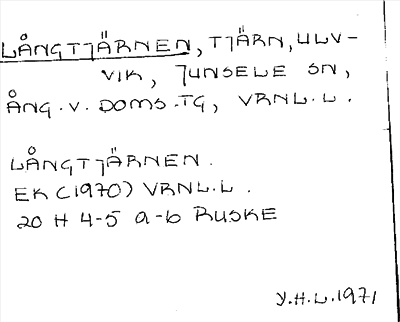 LÅNGTJÄRNEN, TJÄRN, ULV-
VIK, JUNSELE SN,
ÅNG. V. DOMS.TG, VRNL.L.
LÅNGTJÄRNEN.
EK (1970) VRNL.L.
20 H 4-5 a-b RUSKE
Y.H.L. 1971